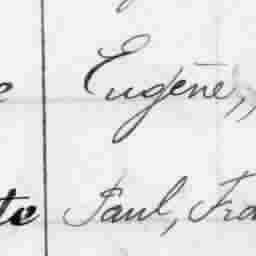 Eugène,
Paul, Fra